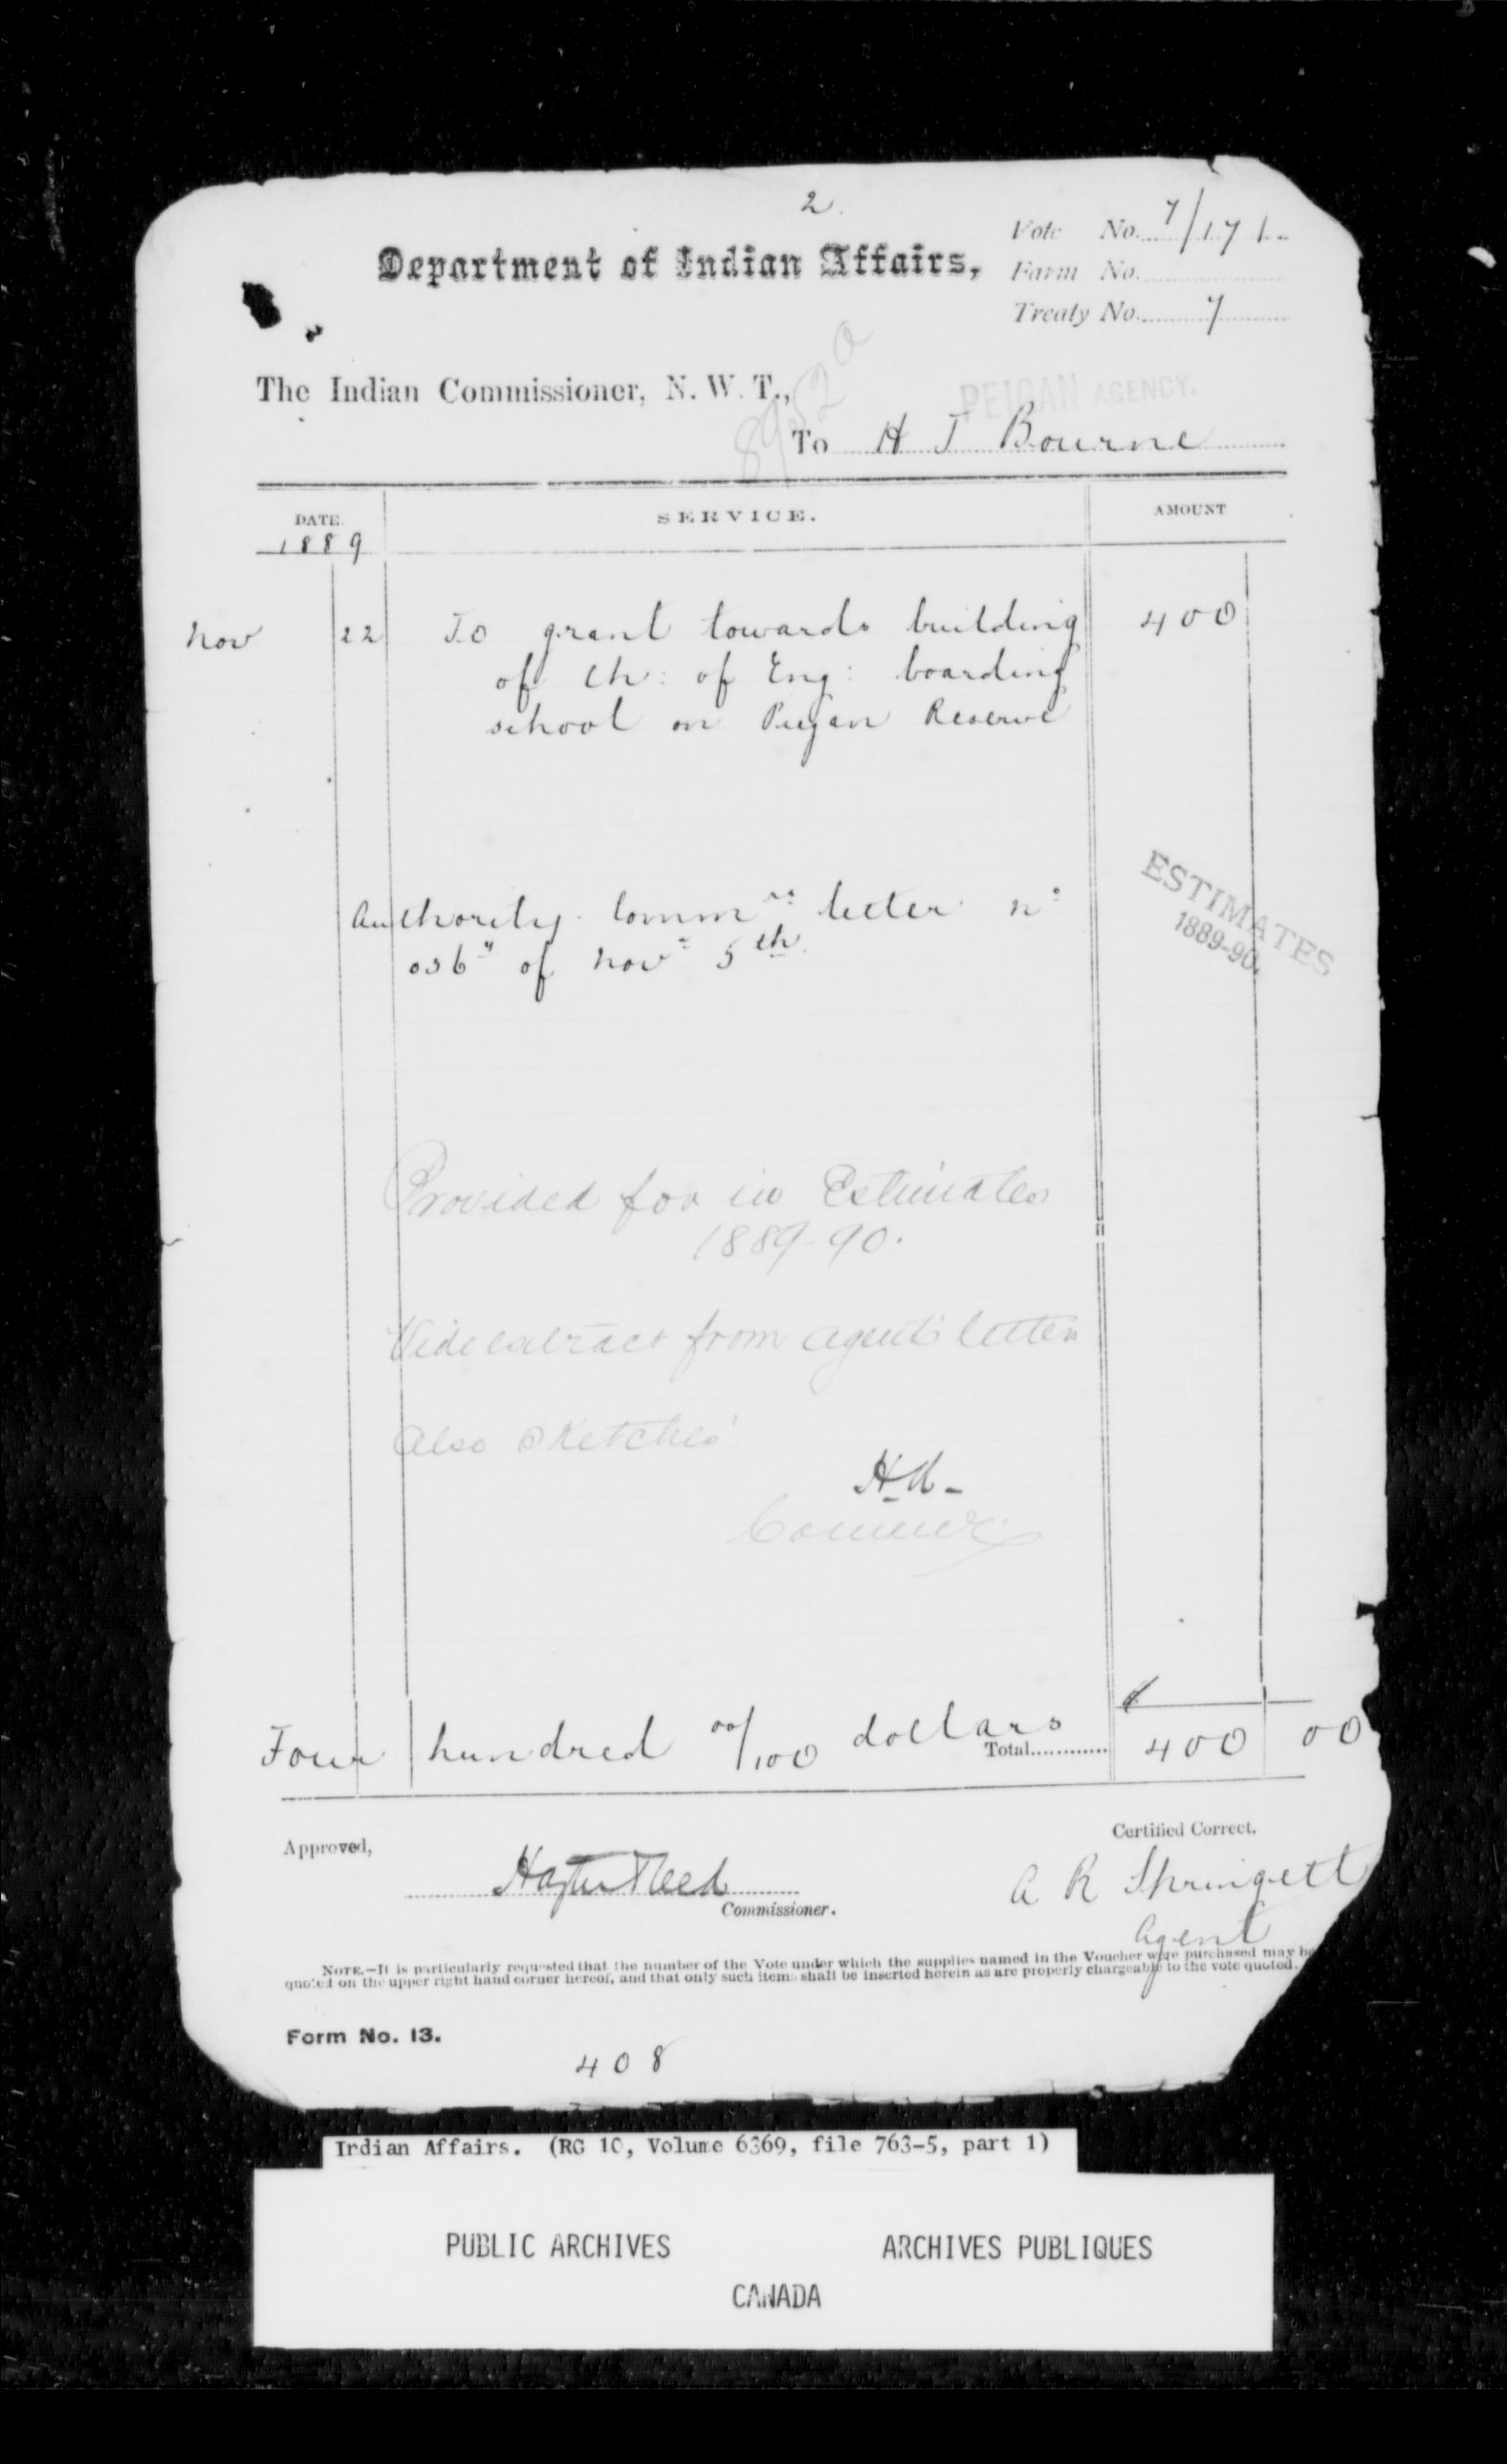 2.
Vote No. 7/171
Department of Indian Affairs,
Farm No.
Treaty No. 7
The Indian Commissioner, N. W. T.,
PEIGAN AGENCY.
To H J Bourne
DATE. SERVICE. AMOUNT
1889
Nov 22 To grant towards building 400
of Ch: of Eng: boarding
school on Piegan Reserve
ESTIMATES
1889-90.
Authority Commrs letter no
036 of Nov 5th
Provided for in Estimates
1889-90.
Vide extract from agents letter
Also sketches
H.R.
Commr
Four hundred 00/100 dollars Total 400 00
Certified Correct.
Approved,
Hayter Reed
A R Springett
Commissioner.
Agent
NOTE.—It is particularly requested that the number of the Vote under which the supplies named in the Voucher were purchased may be
quoted on the upper right hand corner hereof, and that only such items shall be inserted herein as are properly chargeable to the vote quoted.
Form No. 13.
408
Indian Affairs. (RG 10, Volume 6369, file 763-5, part 1)
PUBLIC ARCHIVES ARCHIVES PUBLIQUES
CANADA